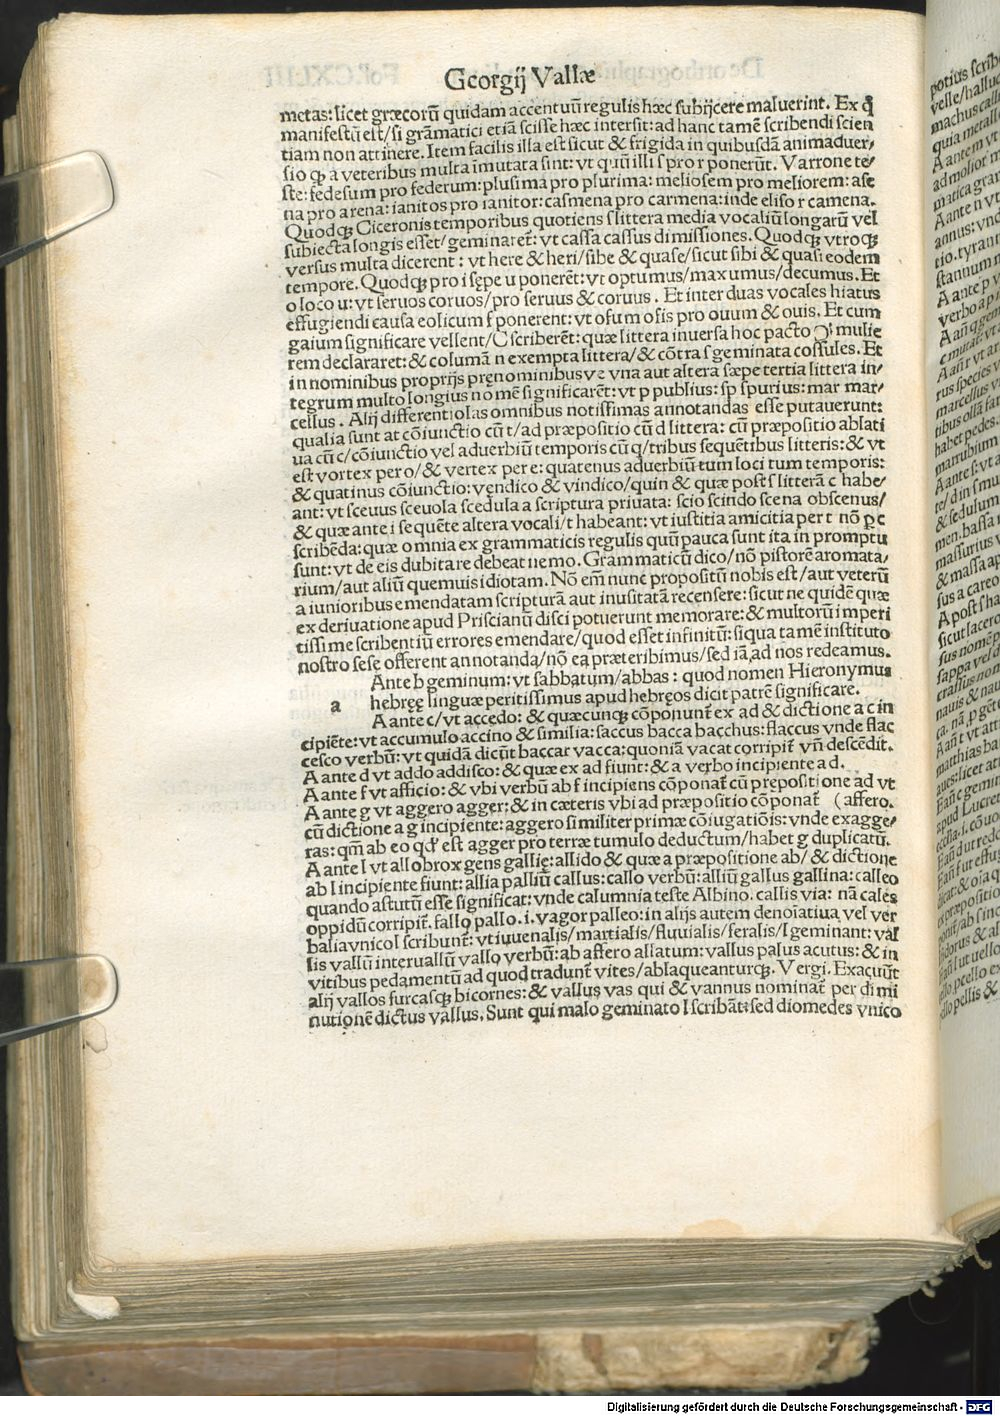 Georgij Vallæ
metas: licet græcorū quidam accentuū regulis hæc subijcere maluerint. Ex q̃
manifestū est/si grāmatici etiā scisse hæc intersit: ad hanc tamē scribendi scien
tiam non attinere. Item facilis illa est sicut & frigida in quibusdā animaduer/
sio qꝫ a veteribus multa īmutata sint: vt quū illi s pro r ponerūt. Varrone te/
ste: fedesum pro federum: plusima pro plurima: meliosem pro meliorem: ase
na pro arena: ianitos pro ianitor: casmena pro carmena: inde eliso r camena.
Quodqꝫ Ciceronis temporibus quotiens s littera media vocaliū longarū vel
subiecta longis esset/geminaret̄: vt cassa cassus dimissiones. Quodqꝫ vtroqꝫ
versus multa dicerent: vt here & heri/sibe & quase/sicut sibi & quasi eodem
tempore. Quodqꝫ pro i sępe u ponerēt: vt optumus/maxumus/decumus. Et
o loco u: vt seruos coruos/pro seruus & coruus. Et inter duas vocales hiatus
effugiendi causa eolicum f ponerent: vt ofum ofis pro ouum & ouis. Et cum
gaium significare vellent/C scriberēt: quæ littera inuersa hoc pacto Ɔ mulie
rem declararet: & columā n exempta littera/& cōtra s geminata cossules. Et
in nominibus proprijs pręnominibusve vna aut altera sæpe tertia littera in/
tegrum multo longius nomē significarēt: vt p publius: sp spurius: mar mar/
cellus. Alij differentiolas omnibus notissimas annotandas esse putauerunt:
qualia sunt at cōiunctio cū t/ad præpositio cū d littera: cū præpositio ablati
ua cū c/cōiunctio vel aduerbiū temporis cū q/tribus sequētibus litteris: & vt
est vortex per o/& vertex per e: quatenus aduerbiū tum loci tum temporis:
& quatinus cōiunctio: vendico & vindico/quin & quæ post s litterā c habe/
ant: vt sceuus sceuola scedula a scriptura priuata: scio scindo scena obscenus/
& quæ ante i sequēte altera vocali/t habeant: vt iustitia amicitia per t nō p c
scribēda: quæ omnia ex grammaticis regulis quū pauca sunt ita in promptu
sunt: vt de eis dubitare debeat nemo. Grammaticū dico/nō pistorē aromata/
rium/aut aliū quemuis idiotam. Nō em̄ nunc propositū nobis est/aut veterū
a iunioribus emendatam scripturā aut inusitatā recensere: sicut ne quidē quæ
ex deriuatione apud Priscianū disci potuerunt memorare: & multorū imperi
tissime scribentiū errores emendare/quod esset infinitū: siqua tamē instituto
nostro sese offerent annotanda/nō ea præteribimus/sed iā ad nos redeamus.
Ante b geminum: vt sabbatum/abbas: quod nomen Hieronymus
a hebręę linguæ peritissimus apud hebręos dicit patrē significare.
A ante c/vt accedo: & quæcunqꝫ cōponunt̄ ex ad & dictione a c in
cipiēte: vt accumulo accino & similia: saccus bacca bacchus: flaccus vnde flac
cesco verbū: vt quidā dicūt baccar vacca: quoniā vacat corripit̄ vn̄ descēdit.
A ante d vt addo addisco: & quæ ex ad fiunt: & a verbo incipiente ad.
A ante f vt afficio: & vbi verbū ab f incipiens cōponat̄ cū prępositione ad vt
A ante g vt aggero agger; & in cæteris vbi ad præpositio cōponat̄ (affero.
cū dictione a g incipiente: aggero similiter primæ cōiugatiōis: vnde exagge/
ras: qm̄ ab eo qd̄ est agger pro terræ tumulo deductum/habet g duplicatū.
A ante l vt allobrox gens gallię: allido & quæ a præpositione ab/ & dictione
ab l incipiente fiunt: allia palliū callus: callo verbū: alliū gallus gallina: calleo
quando astutū esse significat: vnde calumnia teste Albino. callis via: nā cales
oppidū corripit̄. fallo pallo .i. vagor palleo: in alijs autem denoīatiua vel ver
balia vnico l scribunt̄: vt iuuenalis/martialis/fluuialis/feralis/l geminant: val
lis vallū interuallū vallo verbū: ab affero allatum: vallus palus acutus: & in
vitibus pedamentū ad quod tradunt̄ vites/ablaqueanturqꝫ. Vergi. Exacuūt
alij vallos furcasqꝫ bicornes: & vallus vas qui & vannus nominat̄ per dimi
nutionē dictus vallus. Sunt qui malo geminato l scribāt: sed diomedes vnico
Digitalisierung gefördert durch die Deutsche Forschungsgemeinschaft - DFG